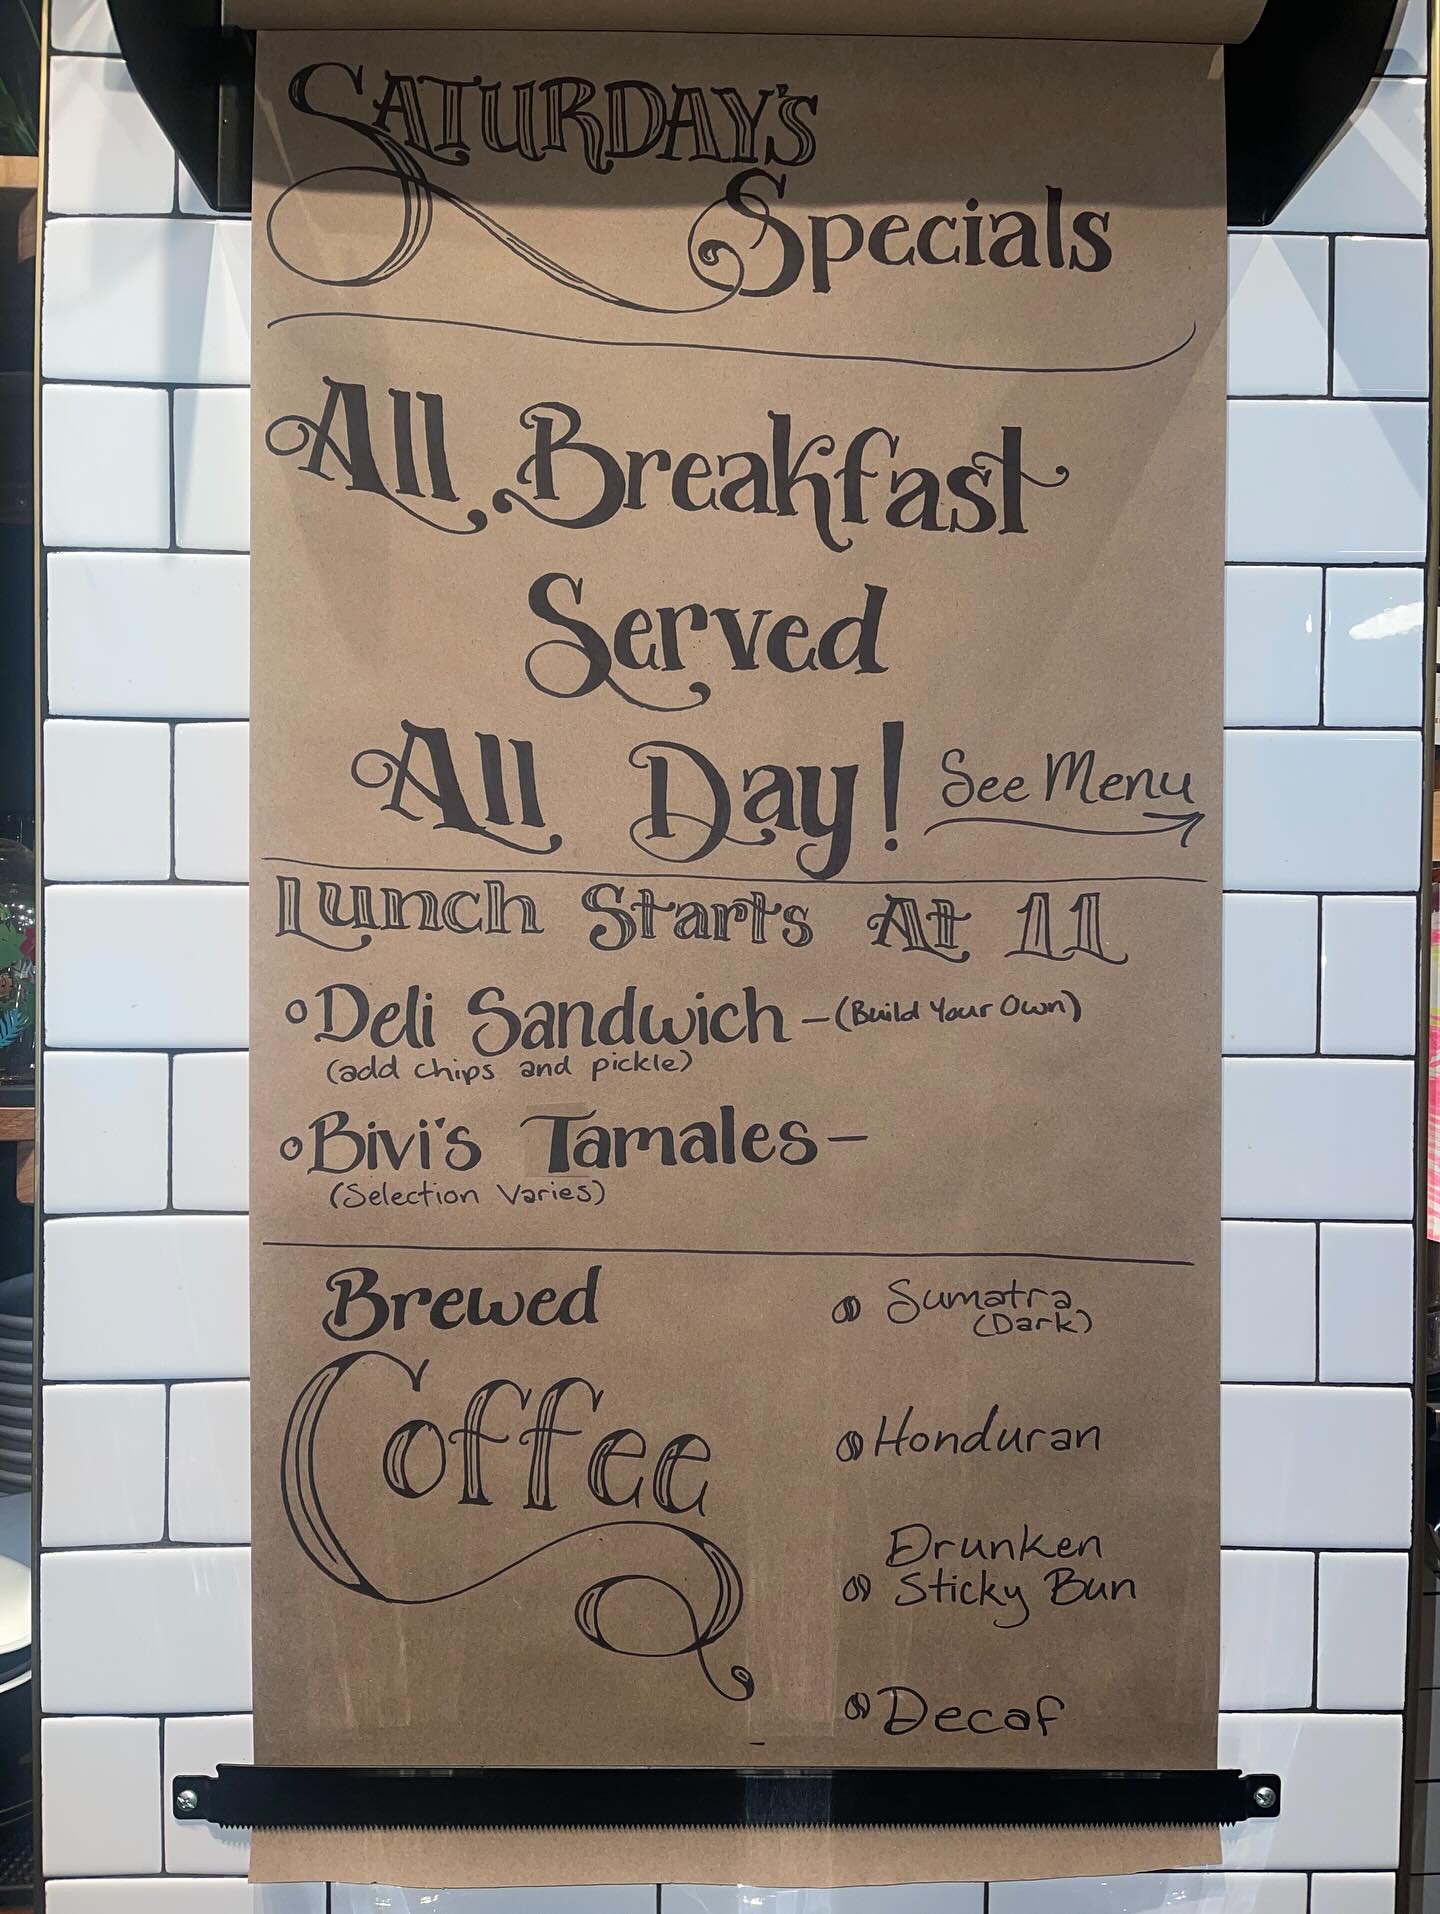 SATURDAY'S
Specials
All Breakfast
Served
All Day! See Menu
Lunch Starts At 11
Deli Sandwich - (Build Your Own)
(add chips and pickle)
Bivi's Tamales -
(Selection Varies)
Brewed
Coffee
Sumatra
(Dark)
Honduran
Drunken
Sticky Bun
Decaf